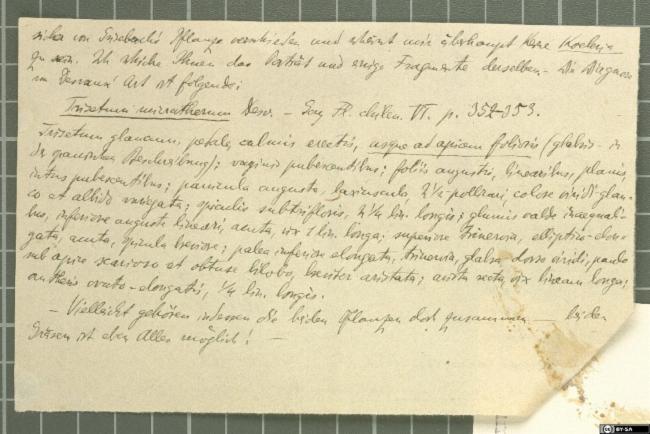 sicher von Grisebach's Pflanze verschieden und scheint mir überhaupt keine Koeleria
zu sein. Ich schicke Ihnen das Porträt und einige Fragmente derselben. – Die Diagnose
von Desvaux' Art ist folgende:
Trisetum micratherum Desv. – Gay Fl. chilen. VI. p. 352–353.
Trisetum glaucum, culmis erectis, usque ad apicem foliosis (glabris – in
der spanischen Beschreibung); vaginis pubescentibus; foliis angustis, linearibus, planis,
intus pubescentibus; panicula angusta, laxiuscula, 2½ pollicari, colore viridi-glau-
co et albido variegata; spiculis subtrifloris, 2¼ lin. longis; glumis valde inaequali-
bus, inferiore anguste lineari, acuta, vix 1 lin. longa; superiore trinervia, elliptico-elon-
gata, acuta, spicula breviore; palea inferiore elongata, trinervia, glabra dorso viridi, paulo
sub apice scarioso et obtuse bilobo, breviter aristata; arista recta, vix lineam longa;
antheris ovato-elongatis, ¼ lin. longis.
– Vielleicht gehören indessen die beiden Pflanzen doch zusammen – bei den
Gräsern ist eben Alles möglich! –
CC BY-SA